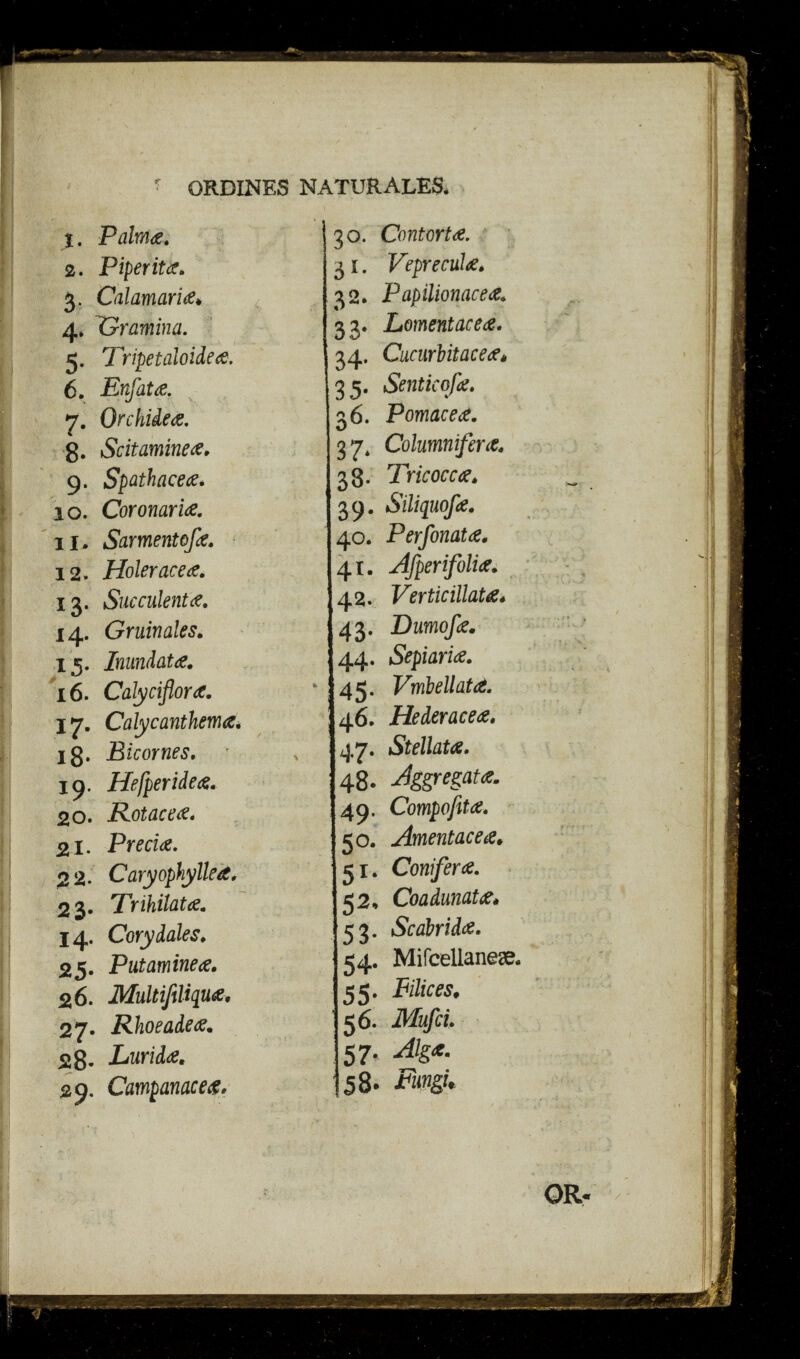 ORDINES NATURALES.
1. Palmæ.
2. Piperitæ.
3. Calamariæ.
4. Gramina.
5. Tripetaloideæ.
6. Enſatæ.
7. Orchideæ.
8. Scitamineæ.
9. Spathaceæ.
10. Coronariæ.
11. Sarmentoſæ.
12. Holeraceæ.
13. Succulentæ.
14. Gruinales.
15. Inundatæ.
16. Calycifloræ.
17. Calycanthemæ.
18. Bicornes.
19. Heſperideæ.
20. Rotaceæ.
21. Preciæ.
22. Caryophylleæ.
23. Trihilatæ.
14. Corydales.
25. Putamineæ.
26. Multiſiliquæ.
27. Rhoeadeæ.
28. Luridæ.
29. Campanaceæ.
30. Contortæ.
31. Vepreculæ.
32. Papilionaceæ.
33. Lomentaceæ.
34. Cucurbitaceæ.
35. Senticoſæ.
36. Pomaceæ.
37. Columniferæ.
38. Tricoccæ.
39. Siliquoſæ.
40. Perſonatæ.
41. Aſperifoliæ.
42. Verticillatæ.
43. Dumoſæ.
44. Sepiariæ.
45. Vmbellatæ.
46. Hederaceæ.
47. Stellatæ.
48. Aggregatæ.
49. Compoſitæ.
50. Amentaceæ.
51. Coniferæ.
52. Coadunatæ.
53. Scabridæ.
54. Miſcellaneæ.
55. Filices.
56. Muſci.
57. Algæ.
58. Fungi.
OR-